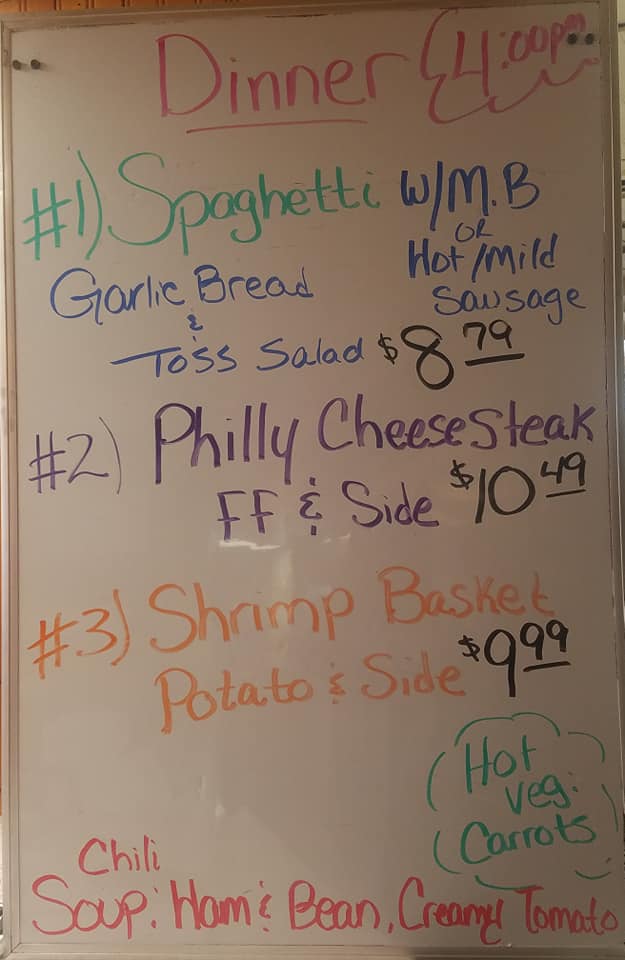 Dinner 4:00pm
#1) Spaghetti w/M.B
or
Hot/Mild
Sausage
Garlic Bread
&
Toss Salad $8.79
#2) Philly CheeseSteak
FF & Side $10.49
#3) Shrimp Basket
Potato & Side $9.99
Hot
Veg.
Carrots
Chili
Soup: Ham & Bean, Creamy Tomato